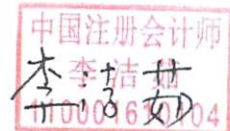 中国注册会计师
李洁茹
李洁茹